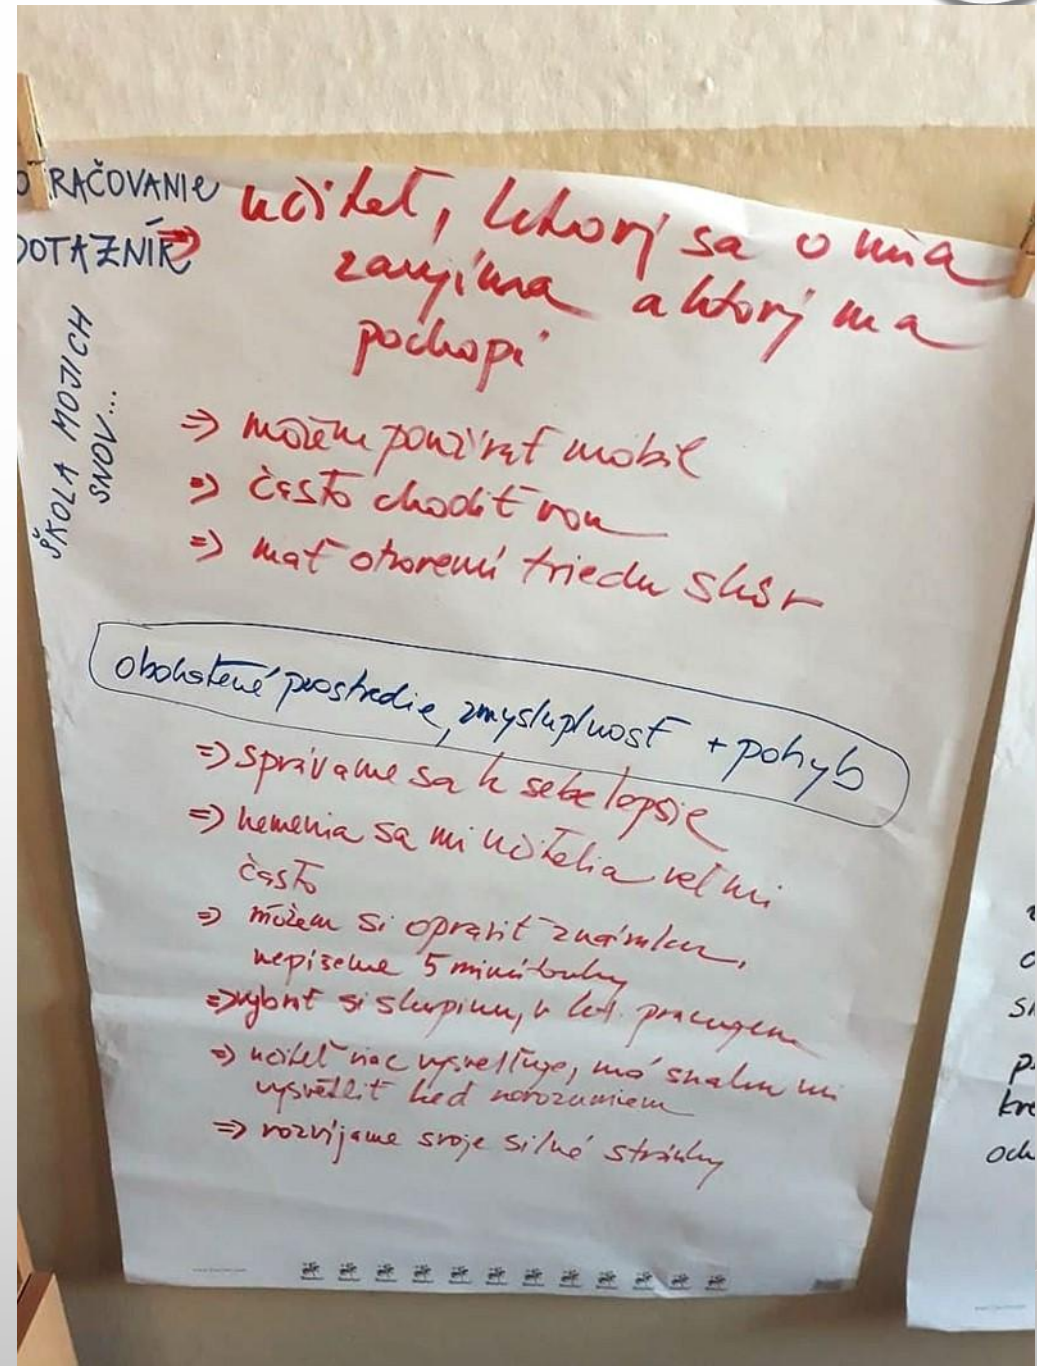 RAČOVANIE
DOTAZNÍK
ŠKOLA MOJICH
SNOV...
⇒ učiteľ, ktorý sa o mňa
zaujíma a ktorý ma
pochopí
⇒ môžem používať mobil
⇒ často chodiť von
⇒ mať otvorenú triedu skôr
obohatené prostredie, zmysluplnosť + pohyb
⇒ správame sa k sebe lepšie
⇒ nemenia sa mi učitelia veľmi
často
⇒ môžem si opraviť známku,
nepíšeme 5 minútovky
⇒ vybrať si skupinu, v kt. pracujem
⇒ učiteľ viac vysvetľuje, má snahu mi
vysvětliť keď nerozumiem
⇒ rozvíjame svoje silné stránky